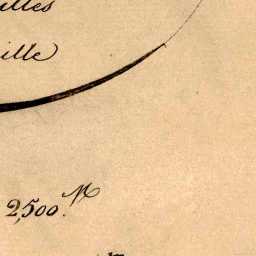 elles
ille
2,500.M